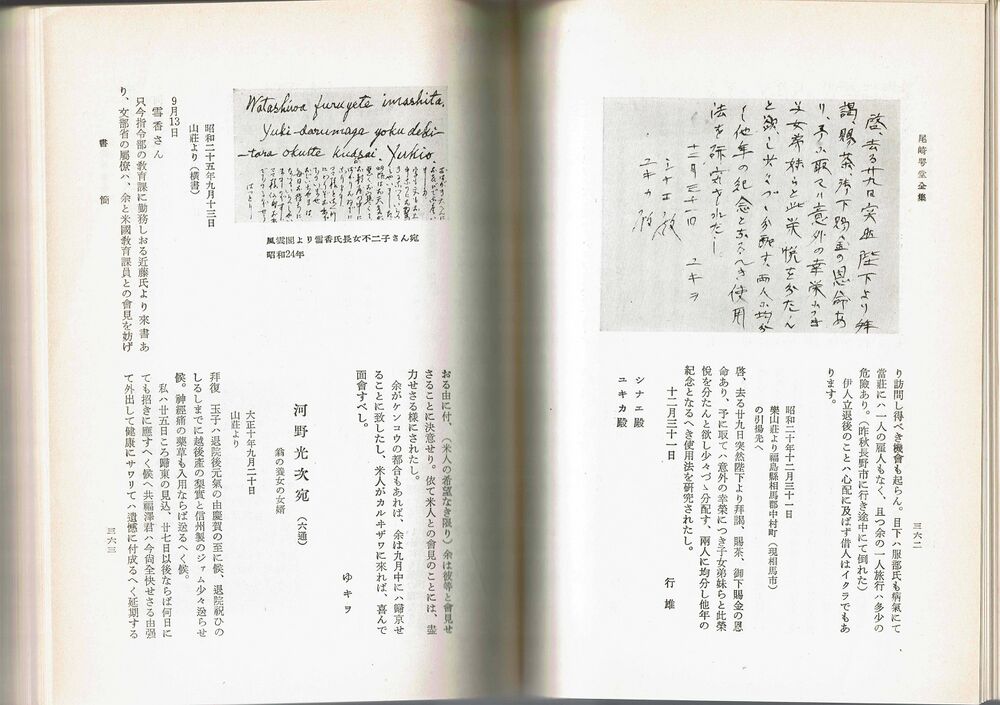 尾崎咢堂全集
啓、去る廿九日突然陛下より拜
謁、賜茶、御下賜金の恩命あ
り、予に取てハ意外の幸栄につき
子女弟妹らと此栄悦を分たん
と欲し少々づゝ分配す、両人に均分
し他年の紀念となるへき使用
法を研究されたし
十二月三十一日 ユキヲ
シナエ殿
ユキカ殿
り訪問し得べき機會も起らん。目下ハ服部氏も病氣にて
當莊にハ一人の雇人もなく、且つ余の一人旅行ハ多少の
危險あり。（昨秋長野市に行き途中にて倒れた）
伊人立退後のことハ心配に及ばず借人はイクラでもあ
ります。
昭和二十年十二月三十一日
樂山莊より福島縣相馬郡中村町（現相馬市）
の引揚先へ
啓、去る廿九日突然陛下より拜謁、賜茶、御下賜金の恩
命あり、予に取てハ意外の幸榮につき子女弟妹らと此榮
悅を分たんと欲し少々づゝ分配す、兩人に均分し他年の
紀念となるへき使用法を硏究されたし。
十二月三十一日
行雄
シナエ殿
ユキカ殿
三六二
Watashiwa furugete imashita.
Yuki-darumaga yoku deki-
tara okutte kudasai. Yukio
風雲閣より雪香氏長女不二子さん宛
昭和24年
昭和二十五年九月十三日
山莊より（橫書）
9月13日
雪香さん
只今指令部の敎育課に勤務しおる近藤氏より來書あ
り、文部省の屬僚ハ、余と米國敎育課員との會見を妨げ
書簡
おる由に付、（米人の希望なき限り）余は彼等と會見せ
さることに決意せり。依て米人との會見のことには、盡
力せさる樣にされたし。
余がケンコウの都合もあれば、余は九月中にハ歸京せ
ることに致したし、米人がカルヰザワに來れば、喜んで
面會すべし。
ゆキヲ
河野光次宛（六通）
翁の養女の女婿
大正十年九月二十日
山莊より
拜復 玉子ハ退院後元氣の由慶賀の至に候、退院祝ひの
しるしまでに越後產の梨實と信州製のジァム少々送らせ
候。神經痛の藥草も入用ならば送るへく候。
私ハ廿五日ころ歸東の見込、廿七日以後ならば何日に
ても招きに應すへく候へ共福澤君ハ今尙全快せさる由强
て外出して健康にサワリてハ遺憾に付成るへく延期する
三六三